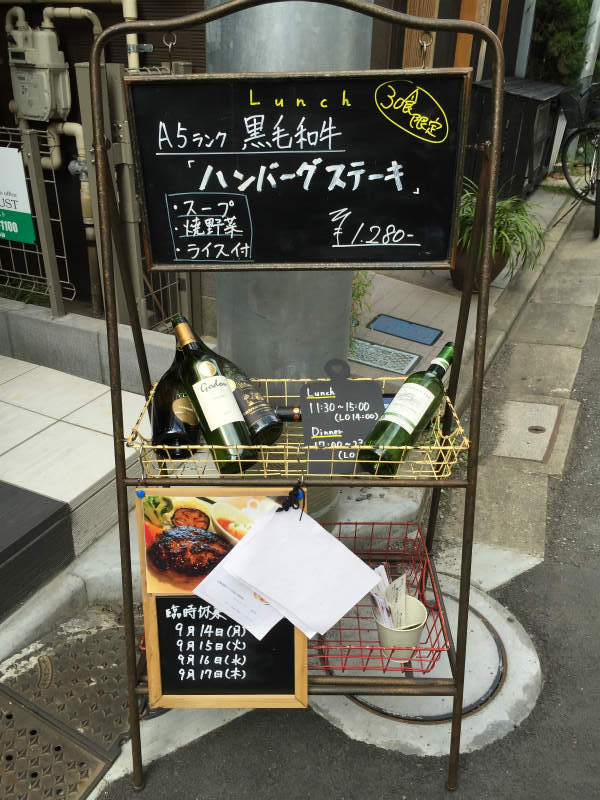 Lunch
30食
限定
A5ランク 黒毛和牛
「ハンバーグステーキ」
・スープ
・焼野菜
・ライス付
¥1.280-
UST
1100
Lunch
11:30〜15:00
(LO 14:00)
Dinner
(LO
臨時休業
9月14日(月)
9月15日(火)
9月16日(水)
9月17日(木)